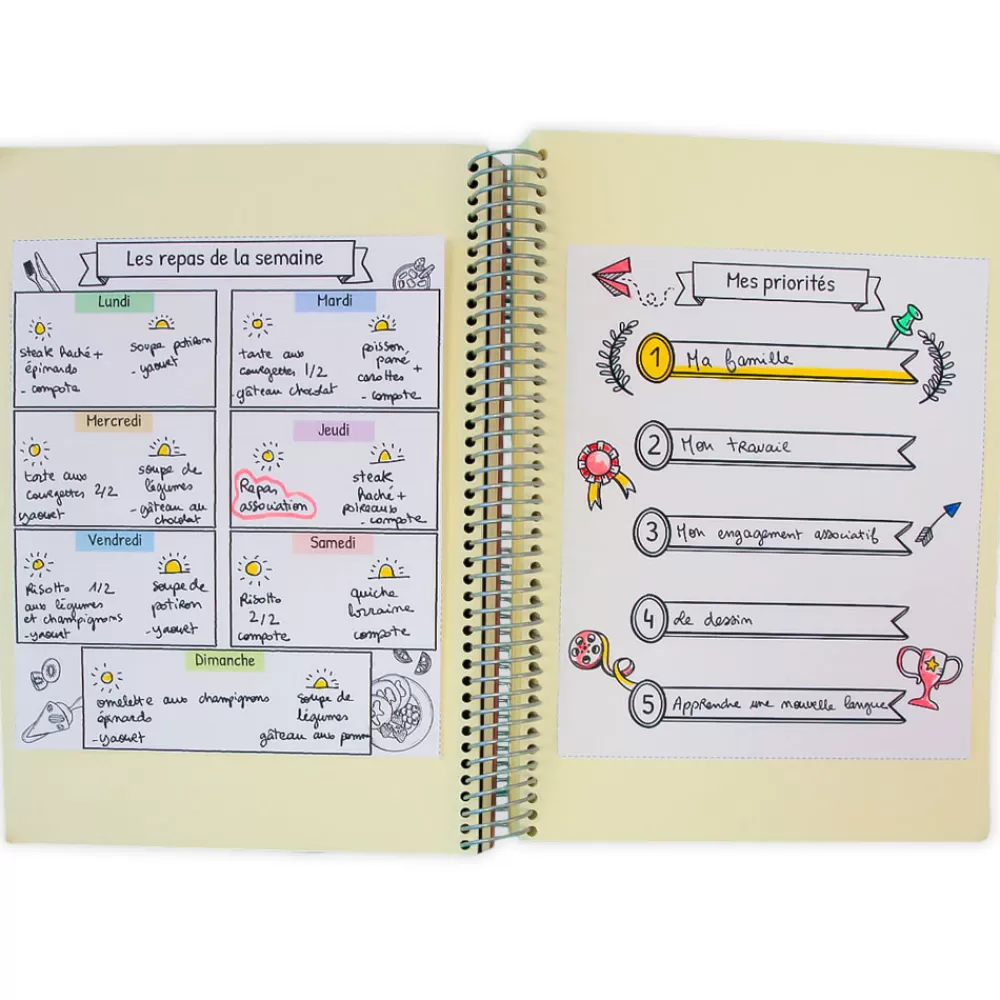 Les repas de la semaine
Lundi
steak haché +
épinards
- compote
soupe potiron
- yaourt
Mardi
tarte aux
courgettes 1/2
gâteau chocolat
poisson
pané
+
carottes
- compote
Mercredi
tarte aux
courgettes 2/2
yaourt
soupe de
légumes
- gâteau au
chocolat
Jeudi
Repas
association
steak
haché +
poireaux
- compote
Vendredi
Risotto 1/2
aux légumes
et champignons
- yaourt
soupe de
potiron
- yaourt
Samedi
Risotto
2/2
compote
quiche
lorraine
compote
Dimanche
omelette aux champignons
épinards
- yaourt
soupe de
légumes
gâteau aux pommes
Mes priorités
1 Ma famille
2 Mon travail
3 Mon engagement associatif
4 Le dessin
5 Apprendre une nouvelle langue